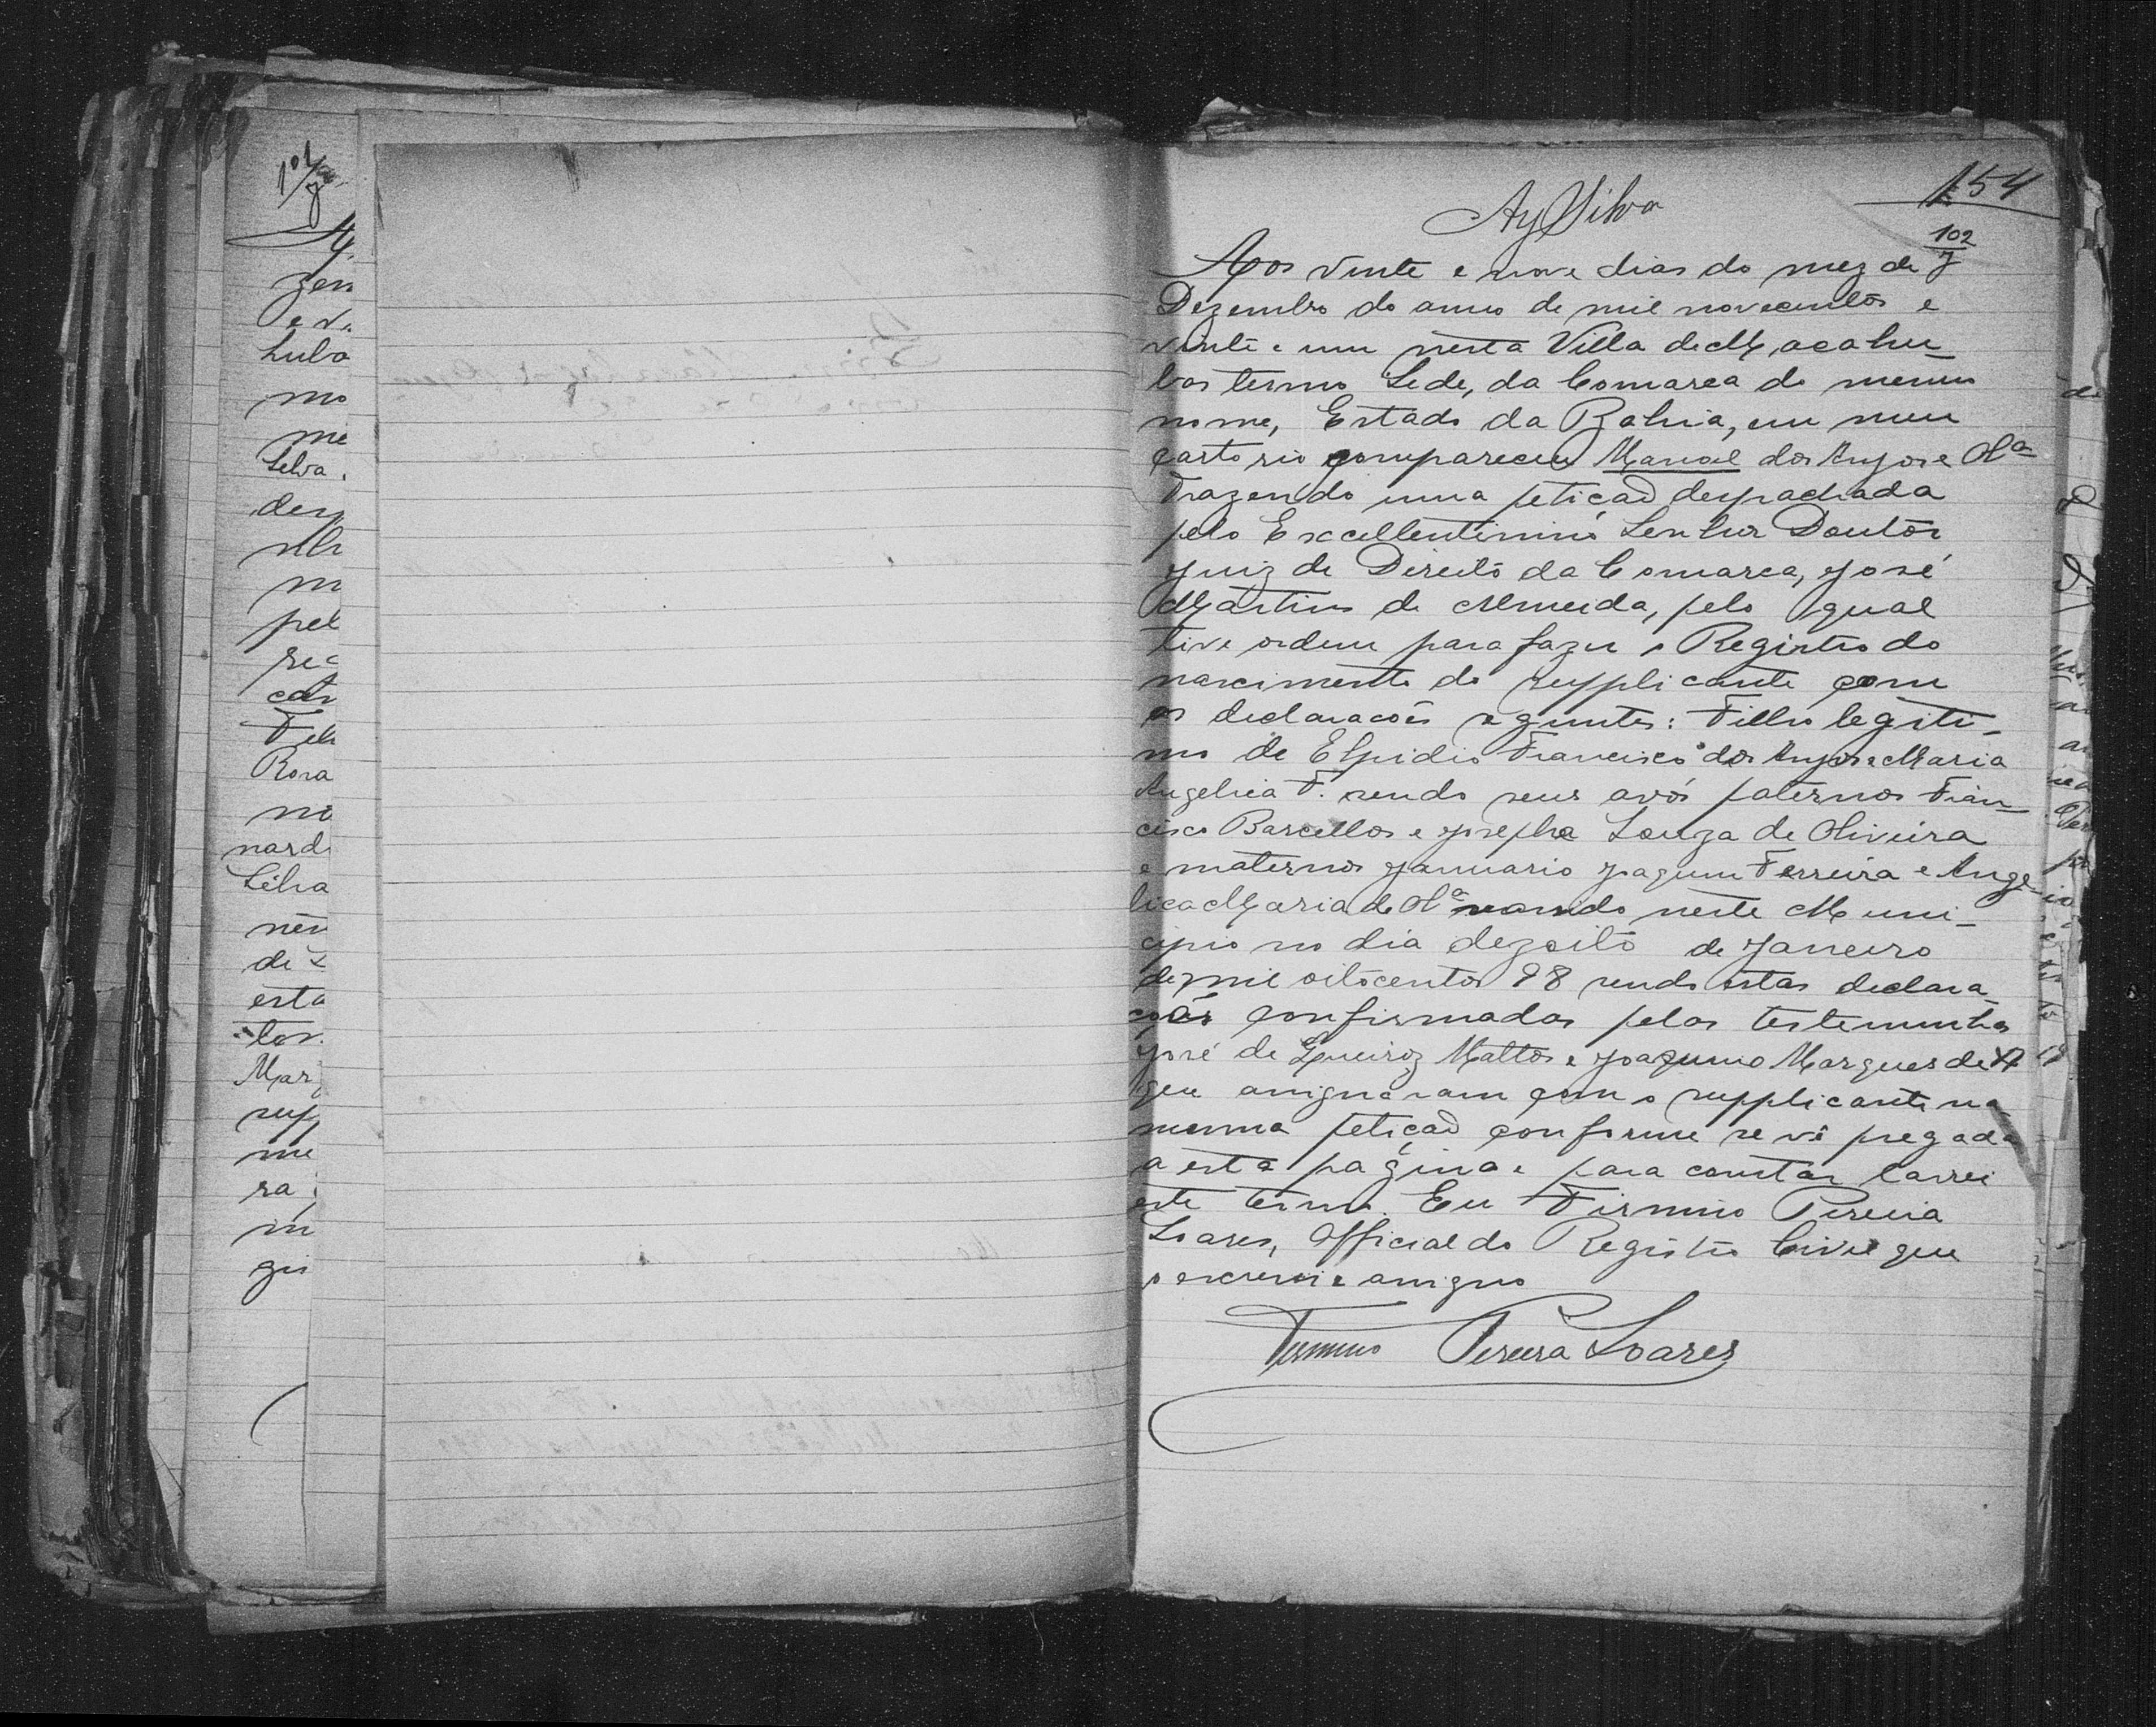 101
zen
e v
Luba
mo
me
Silva
des
nh
m
pel
rec
car
Fil
Rosa
no
nard
Silva
nen
de
esta
tos
Mar
sup
me
ra
in
gis
154
AySilva
102
Aos vinte e nove dias do mez de
Dezembro do anno de mil novecentos e
vinte e um nesta Villa de Macahu-
bas termo Sede, da Comarca do mesmo
nome, Estado da Bahia, em meu
cartorio compareceu Manoel dos Anjos e Olª
trazendo uma petição despachada
pelo Excellentissimo Senhor Doutor
Juiz de Direito da Comarca, José
Martins de Almeida, pelo qual
tive ordem para fazer o Registro do
nascimento do supplicante com
as declarações seguintes: Filho legiti-
mo de Elpidio Francisco dos Anjos e Maria
Angelica F. sendo seus avós paternos Fran-
cisco Barcellos e Josepha Souza de Oliveira
e maternos Januario Joaquim Ferreira e Ange-
lica Maria de Olª nascido neste Muni-
cipio no dia dezoito de Janeiro
de mil oitocentos 98 sendo estas declara-
ções confirmadas pelas testemunhas
José de Queiroz Mattos e Joaquim Marques de
que assignaram com o supplicante na
mesma petição conforme se vê pregada
a esta pagina e para constar lavrei
este termo. Eu Firmino Pereira
Soares, Official do Registro Civil que
o escrevi e assigno
Firmino Pereira Soares